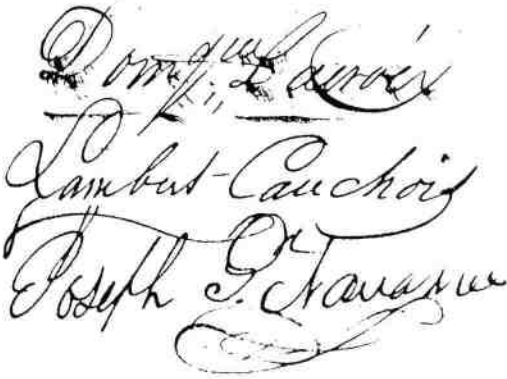 Domque Lacroix
Lambert-Cauchois
Joseph G. Navarre